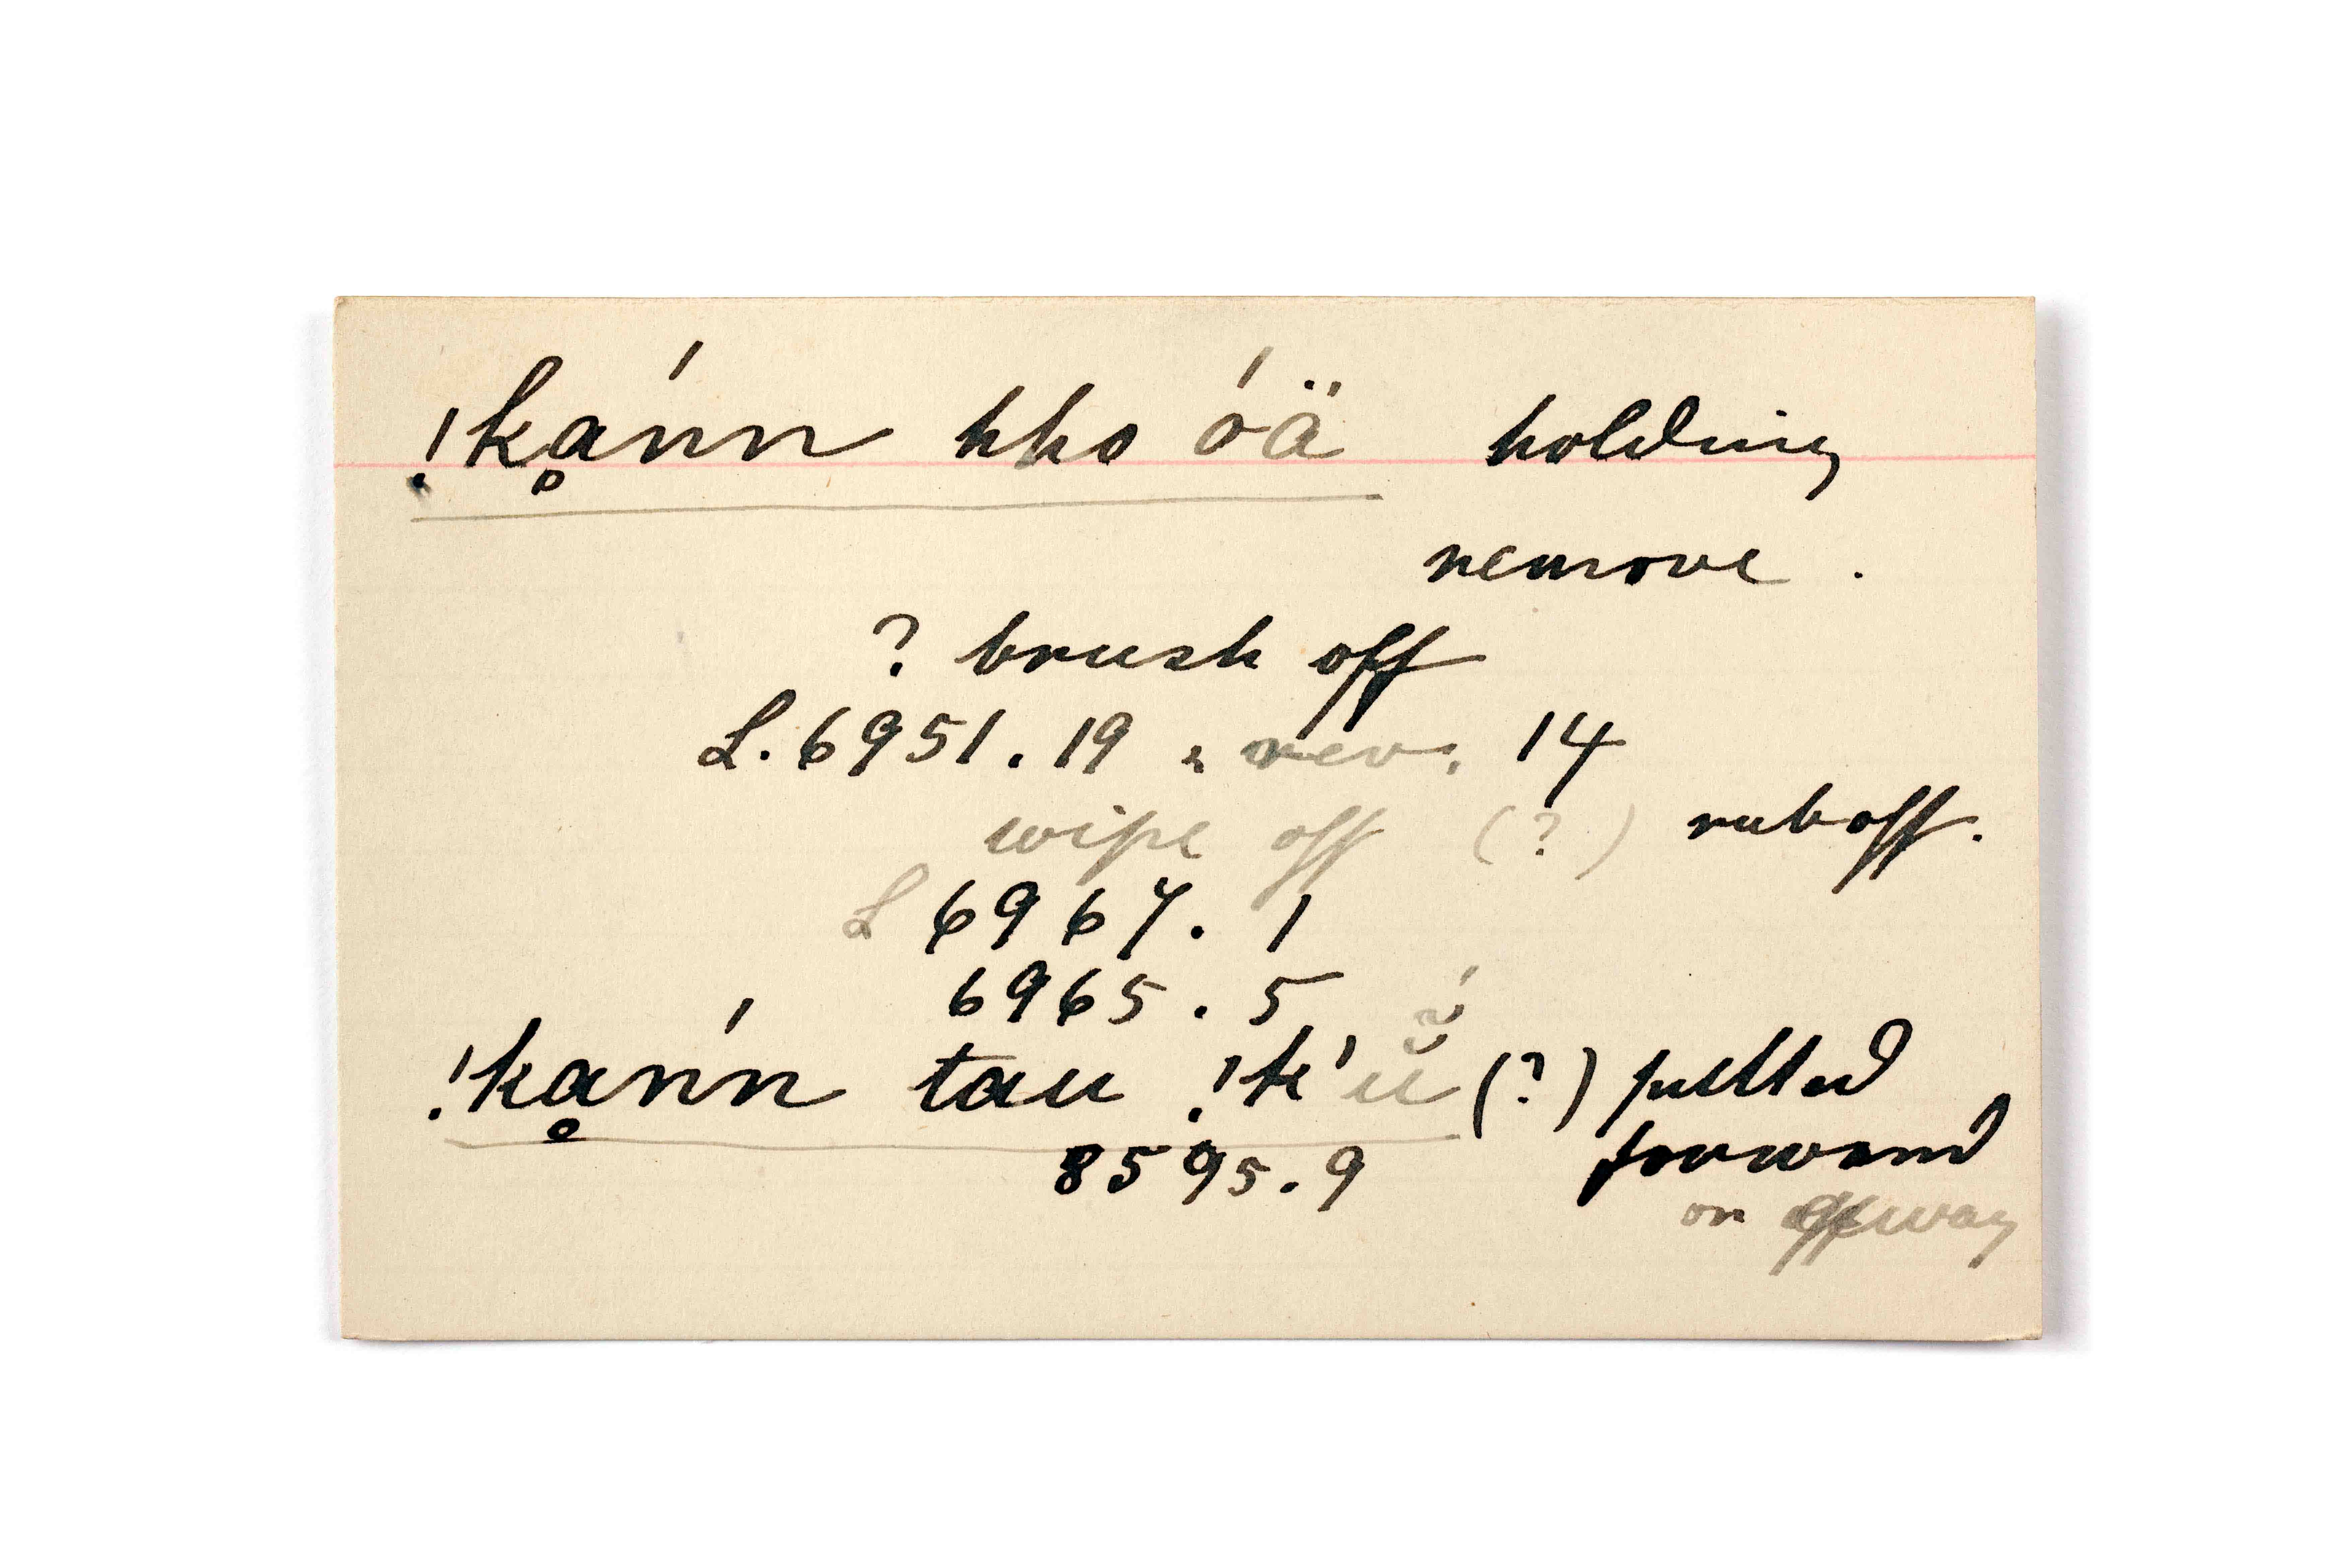 !kḁńn hho óä holding
remove .
? brush off
L. 6951. 19 & rev. 14
wipe off (?) rub off.
L 6967. 1
6965. 5
!kḁńn tau !k'ŭ̃́ (?) pulled
forward
8595. 9
or away